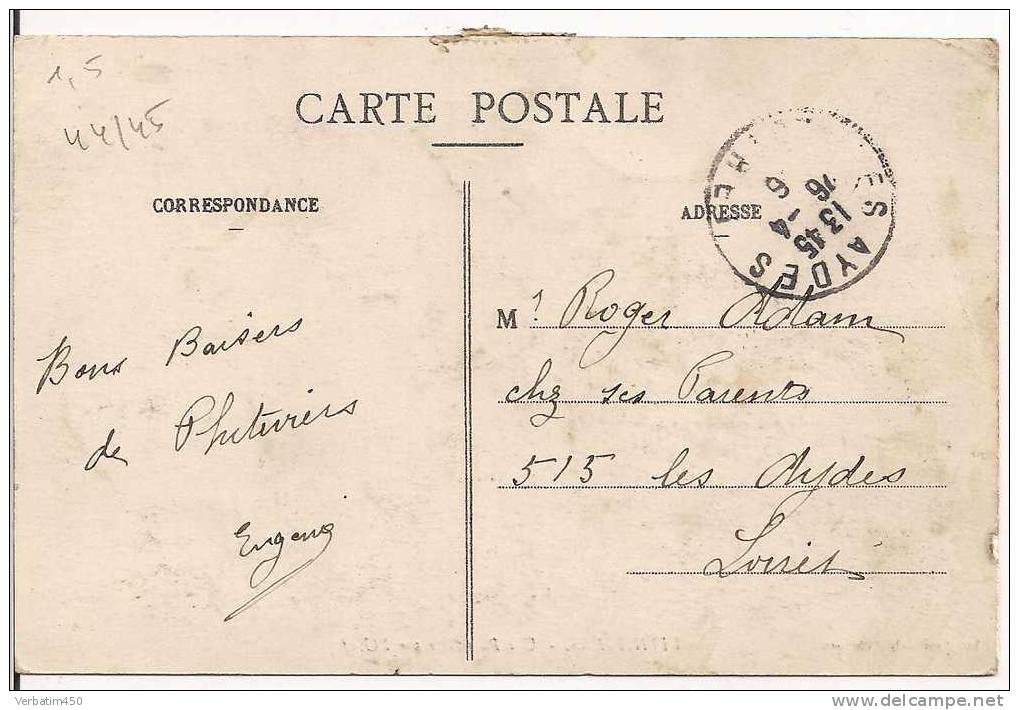 1,5
44/45
CARTE POSTALE
CORRESPONDANCE
ADRESSE
LES AYDES
13 45
6 - 4
16
Bons Baisers
de Phitiviers
Eugene
Mr Roger Adam
chz ses Parents
515 les Aydes
Loiret
Verbatim450
delcampe.net